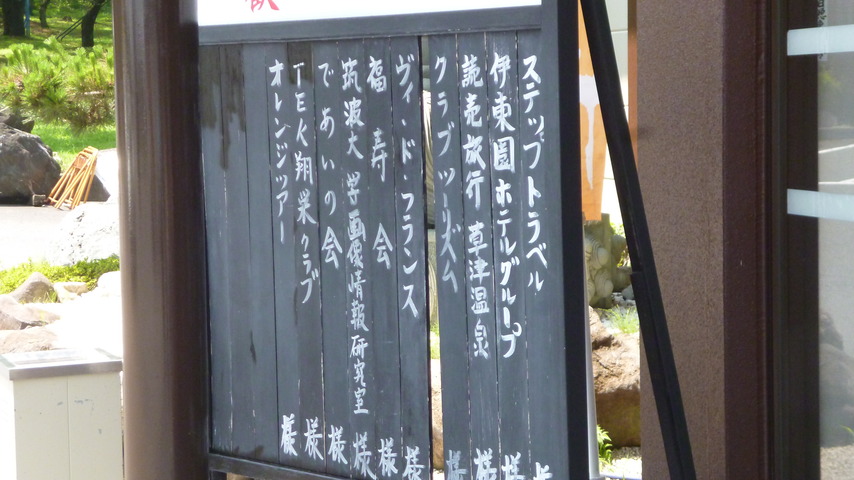 ステップトラベル 様
伊東園ホテルグループ 様
読売旅行 草津温泉 様
クラブツーリズム 様
ヴィンド・フランス 様
福寿会 様
筑波大学画像情報研究室 様
であいの会 様
TEK翔巣クラブ 様
オレンジツアー 様